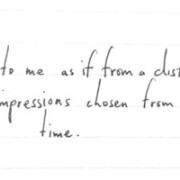 to me as if from a dist
mpressions chosen from
time.